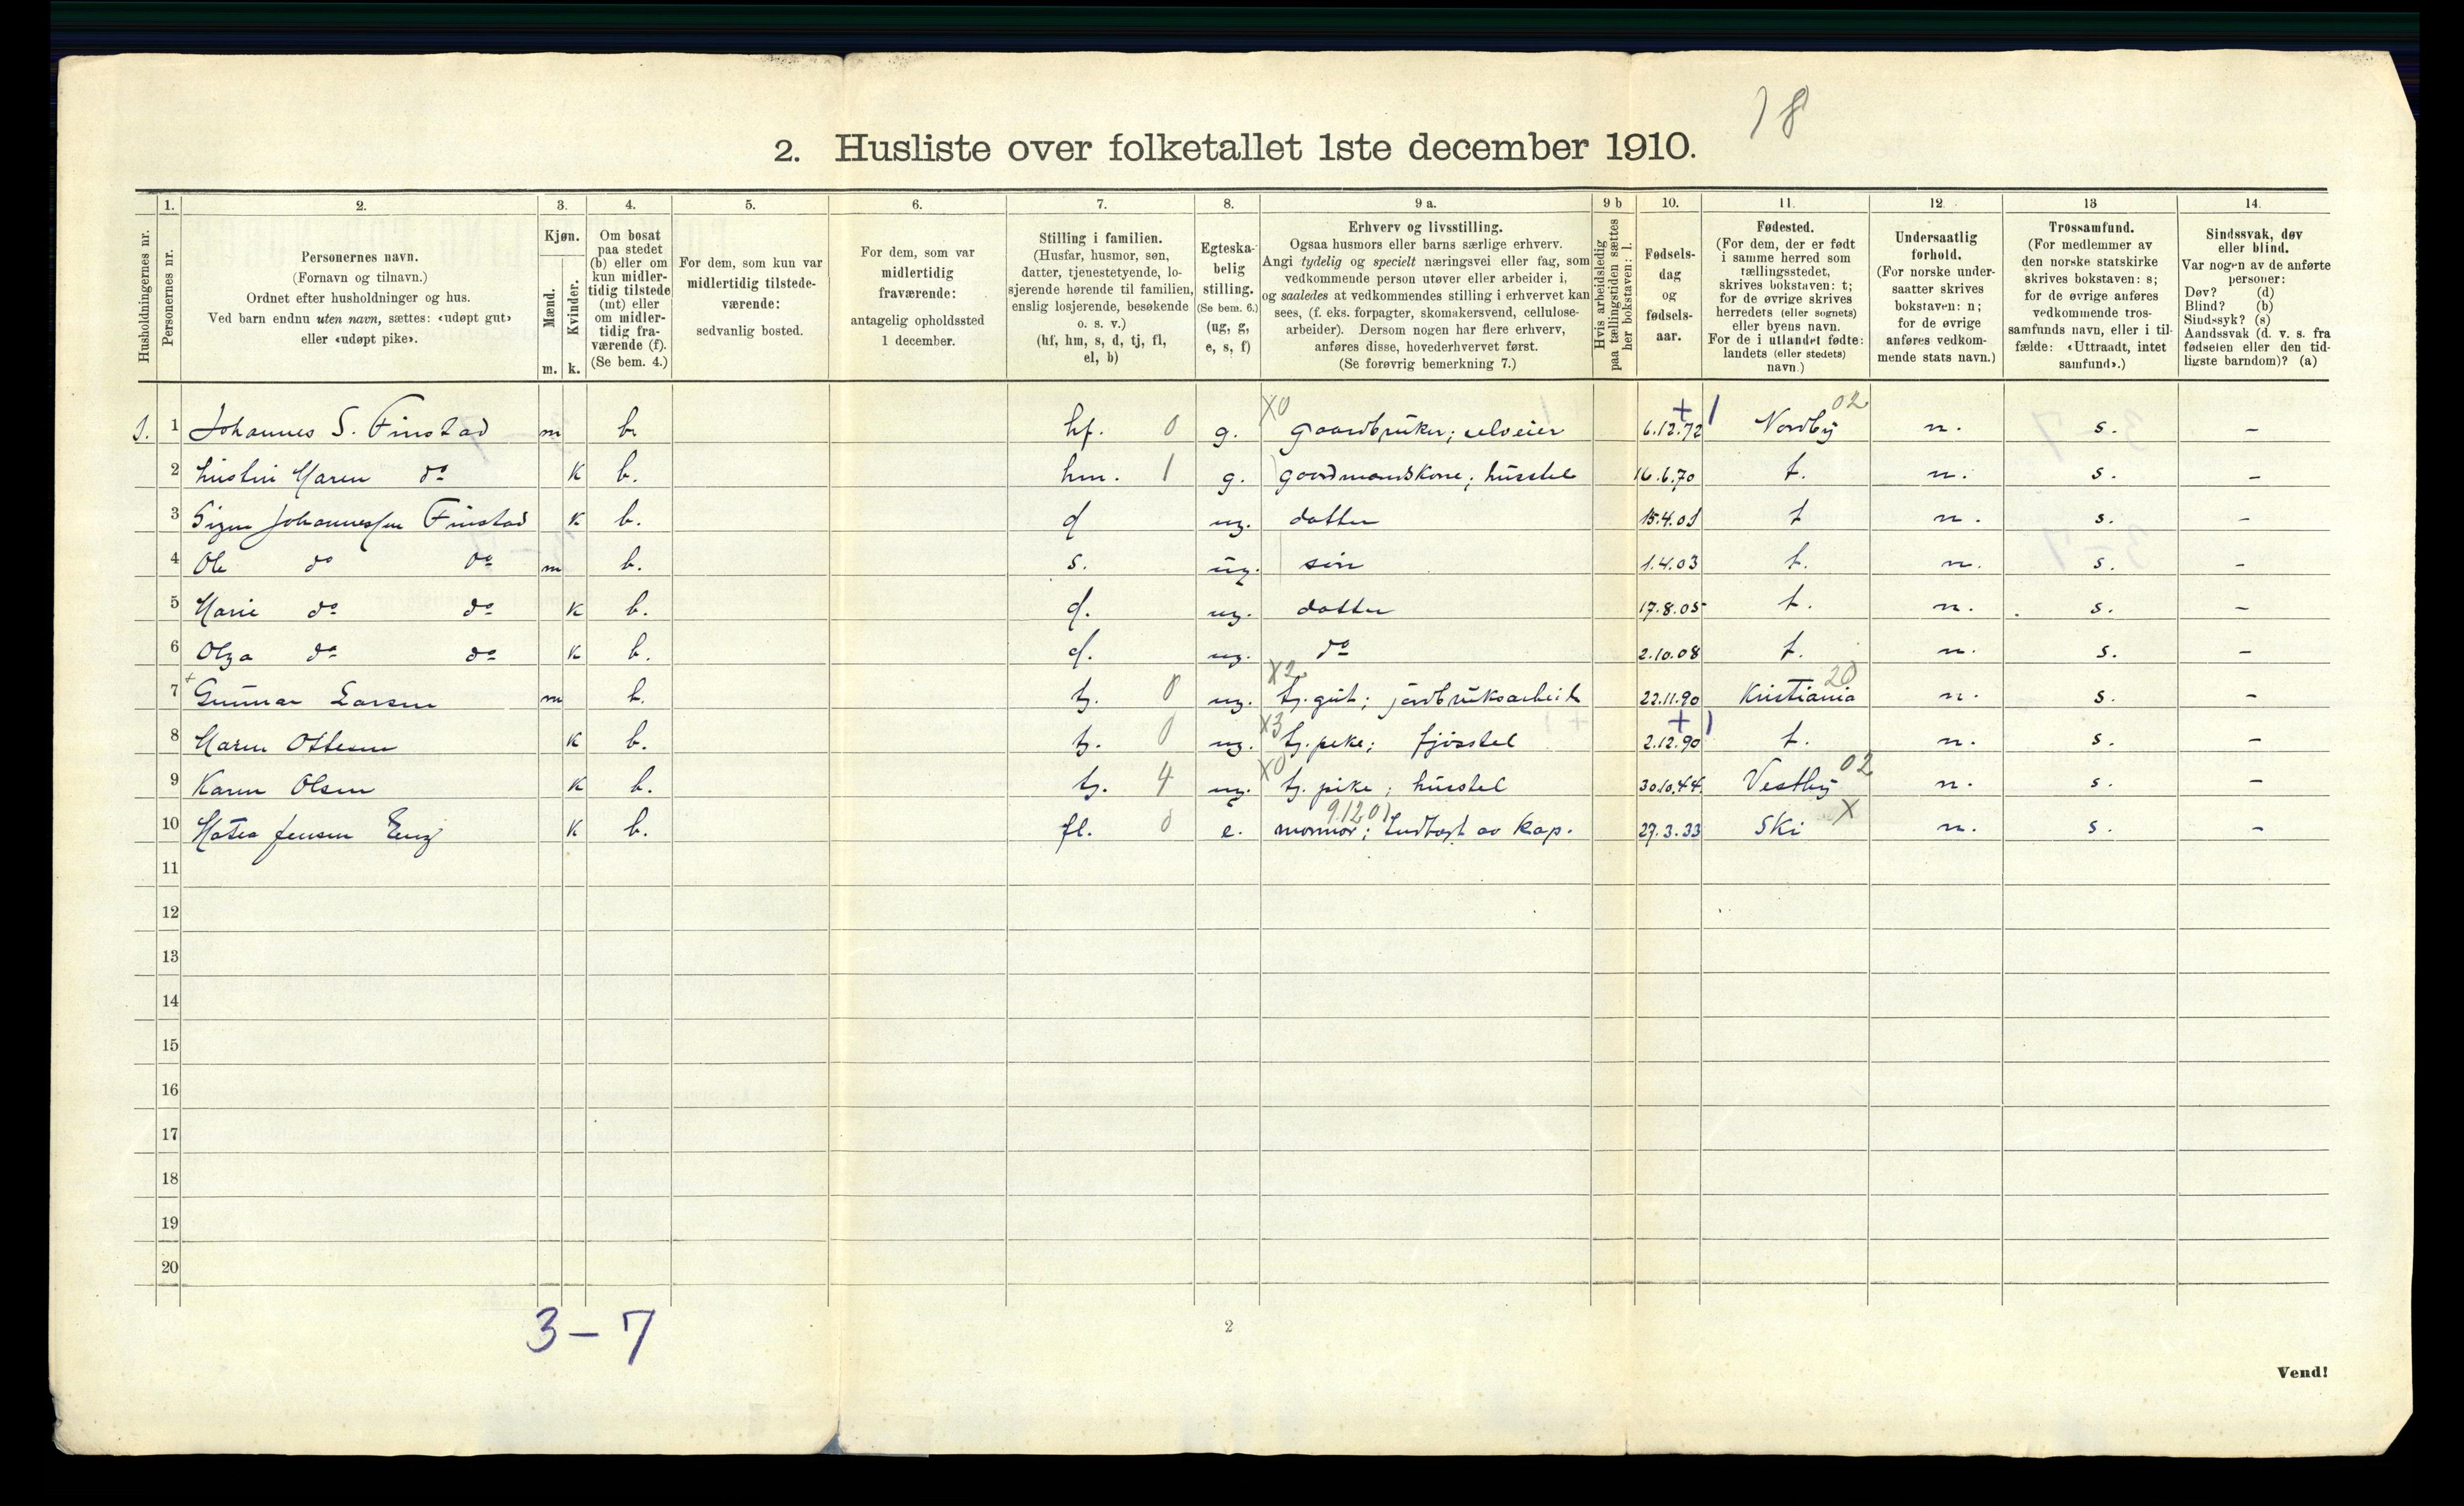 18
2. Husliste over folketallet 1ste december 1910.
Husholdningernes nr.
1.
Personernes nr.
2.
Personernes navn.
(Fornavn og tilnavn.)
Ordnet efter husholdninger og hus.
Ved barn endnu uten navn, sættes: «udøpt gut»
eller «udøpt pike».
3.
Kjøn.
Mænd.
Kvinder.
m. k.
4.
Om bosat
paa stedet
(b) eller om
kun midler-
tidig tilstede
(mt) eller
om midler-
tidig fra-
værende (f).
(Se bem. 4.)
5.
For dem, som kun var
midlertidig tilstede-
værende:
sedvanlig bosted.
6.
For dem, som var
midlertidig
fraværende:
antagelig opholdssted
1 december.
7.
Stilling i familien.
(Husfar, husmor, søn,
datter, tjenestetyende, lo-
sjerende hørende til familien,
enslig losjerende, besøkende
o. s. v.)
(hf, hm, s, d, tj, fl,
el, b)
8.
Egteska-
belig
stilling.
(Se bem. 6.)
(ug, g,
e, s, f)
9 a.
Erhverv og livsstilling.
Ogsaa husmors eller barns særlige erhverv.
Angi tydelig og specielt næringsvei eller fag, som
vedkommende person utøver eller arbeider i,
og saaledes at vedkommendes stilling i erhvervet kan
sees, (f. eks. forpagter, skomakersvend, cellulose-
arbeider). Dersom nogen har flere erhverv,
anføres disse, hovederhvervet først.
(Se forøvrig bemerkning 7.)
9 b
Hvis arbeidsledig
paa tællingstiden sættes
her bokstaven: l.
10.
Fødsels-
dag
og
fødsels-
aar.
11.
Fødested.
(For dem, der er født
i samme herred som
tællingsstedet,
skrives bokstaven: t;
for de øvrige skrives
herredets (eller sognets)
eller byens navn.
For de i utlandet fødte:
landets (eller stedets)
navn.)
12.
Undersaatlig
forhold.
(For norske under-
saatter skrives
bokstaven: n;
for de øvrige
anføres vedkom-
mende stats navn.)
13
Trossamfund.
(For medlemmer av
den norske statskirke
skrives bokstaven: s;
for de øvrige anføres
vedkommende tros-
samfunds navn, eller i til-
fælde: «Uttraadt, intet
samfund».)
14.
Sindssvak, døv
eller blind.
Var nogen av de anførte
personer:
Døv? (d)
Blind? (b)
Sindssyk? (s)
Aandssvak (d. v. s. fra
fødselen eller den tid-
ligste barndom)? (a)
1. 1 Johannes S. Finstad m b. hf. 0 g. X0 gaardbruker; selveier 6.12.72 + 1 Nordby 02 n. s. –
2 Maren do k b. hm. 1 g. gaardmandskone; husstel 16.6.70 t. n. s. –
3 Signe Johannessen Finstad k b. d ug. datter 15.4.01 t n. s. –
4 Ole do do m b. s. ug. sön 1.4.03 t. n. s. –
5 Marie do do k b. d. ug. datter 17.8.05 t. n. s. –
6 Olga do do k b. d. ug. do 2.10.08 t. n. s. –
7 Gunnar Larsen m b. tj. 0 ug. X2 tj. gut; jordbruksarbeid 22.11.90 Kristiania 20 n. s. –
8 Maren Ottesen k b. tj. 0 ug. X3 tj. peke; fjösstel 2.12.90 + 1 t. n. s. –
9 Karen Olsen k b. tj. 4 ug. X0 tj. pike; husstel 30.10.44. Vestby 02 n. s. –
10 Matea Jensen Eng k b. fl. 0 e. 91201 mormor; Indtægt av kap. 27.3.33 Ski X n. s. –
11
12
13
14
15
16
17
18
19
20
3 – 7
2
Vend!